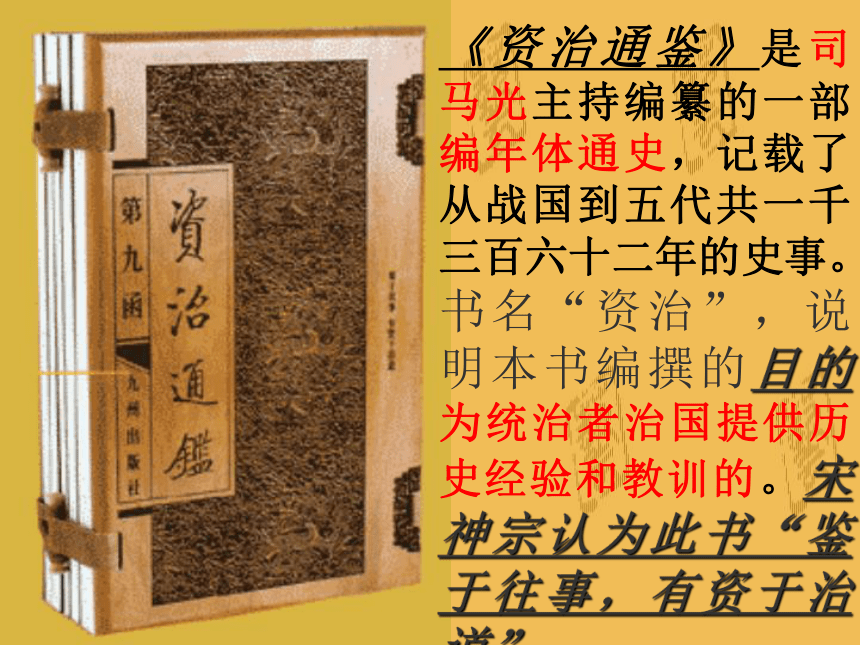 《资治通鉴》是司
马光主持编纂的一部
编年体通史，记载了
从战国到五代共一千
三百六十二年的史事。
书名“资治”，说
明本书编撰的目的
为统治者治国提供历
史经验和教训的。宋
神宗认为此书“鉴
于往事，有资于治
道”
資治通鑑
第九函
九州出版社